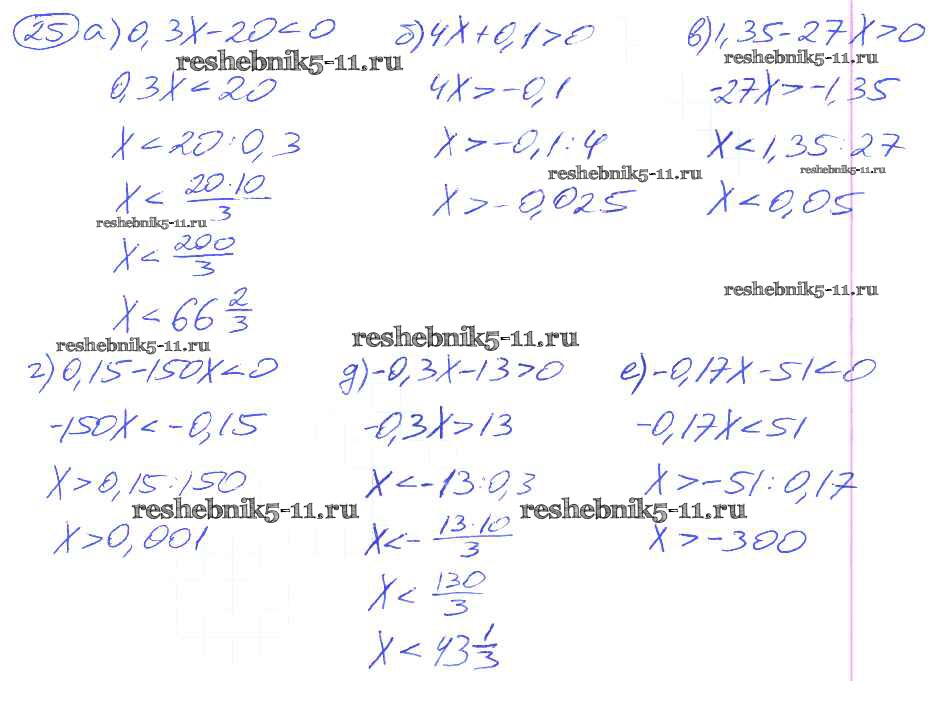 25 а) 0,3x-20<0
0,3x<20
x<20:0,3
x< 20·10/3
x< 200/3
x<66 2/3
б) 4x+0,1>0
4x>-0,1
x>-0,1:4
x>-0,025
в) 1,35-27x>0
-27x>-1,35
x<1,35:27
x<0,05
reshebnik5-11.ru
reshebnik5-11.ru
reshebnik5-11.ru
reshebnik5-11.ru
reshebnik5-11.ru
reshebnik5-11.ru
reshebnik5-11.ru
reshebnik5-11.ru
г) 0,15-150x<0
-150x<-0,15
x>0,15:150
x>0,001
д) -0,3x-13>0
-0,3x>13
x<-13:0,3
x<- 13·10/3
x< 130/3
x<43 1/3
е) -0,17x-51<0
-0,17x<51
x>-51:0,17
x>-300
reshebnik5-11.ru
reshebnik5-11.ru